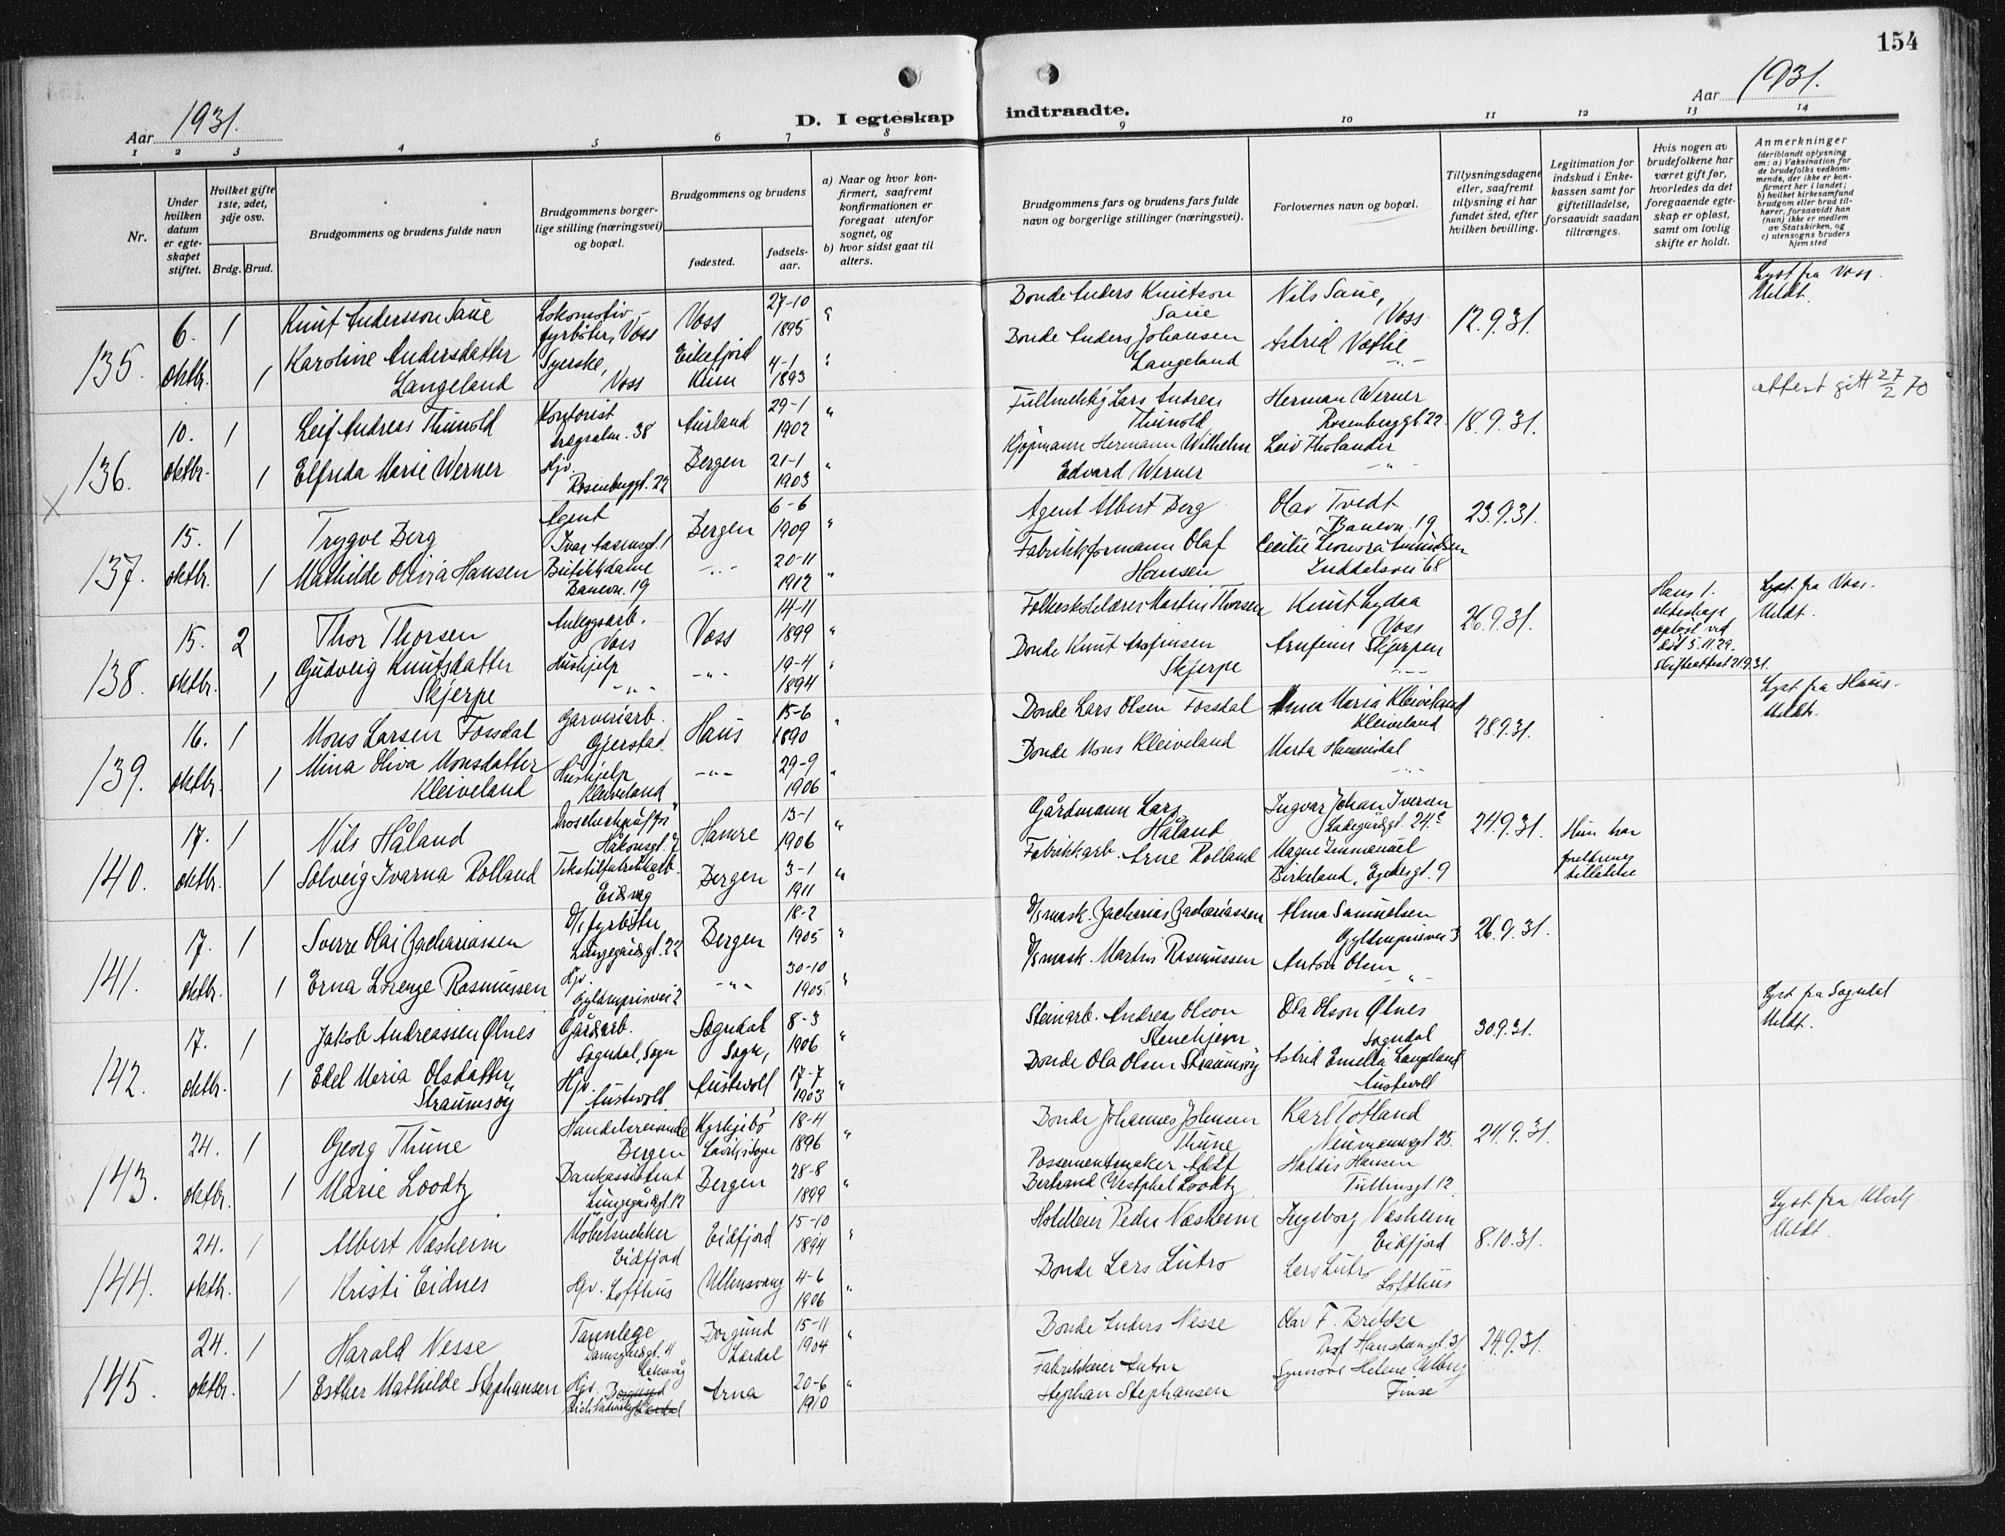 154
Aar 1931.
D. I egteskap indtraadte.
Aar 1931.
1 2 3 4 5 6 7 8 9 10 11 12 13 14
Nr.
Under hvilken datum er egteskapet stiftet.
Hvilket gifte 1ste, 2det, 3dje osv.
Brdg. Brud.
Brudgommens og brudens fulde navn
Brudgommens borgerlige stilling (næringsvei) og bopæl.
Brudgommens og brudens
fødested.
fødselsaar.
a) Naar og hvor konfirmert, saafremt konfirmationen er foregaat utenfor sognet, og
b) hvor sidst gaat til alters.
Brudgommens fars og brudens fars fulde navn og borgerlige stillinger (næringsvei).
Forlovernes navn og bopæl.
Tillysningsdagene eller, saafremt tillysning ei har fundet sted, efter hvilken bevilling.
Legitimation for indskud i Enkekassen samt for giftetilladelse, forsaavidt saadan tiltrænges.
Hvis nogen av brudefolkene har været gift før, hvorledes da det foregaaende egteskap er opløst, samt om lovlig skifte er holdt.
Anmerkninger
(deriblandt oplysning om: a) Vaksination for de brudefolks vedkommende, der ikke er konfirmert her i landet; b) hvilket kirkesamfund brudgom eller brud tilhører, forsaavidt han (hun) ikke er medlem av Statskirken, og c) utensogns bruders hjemsted
135. 6. oktbr. 1 Knut Andersson Saue Lokomotivfyrbøter, Voss Voss 27-10 1895 "
Bonde Anders Knutson Saue Nils Saue, Voss 12.9.31. Lyst fra Voss. Meldt.
1 Karoline Andersdatter Langeland Syerske, Voss Eikefjord Kinn 4-1 1893 "
Bonde Anders Johansen Langeland Astrid Vethe
136. 10. oktbr. 1 Leif Andreas Thunold Kontorist 38 Aurland 29-1 1902 "
Lars Andreas Thunold Herman Werner Rosenberggt. 22 18.9.31. attest gitt 27/2 70
1 Elfrida Marie Werner Hjv. Rosenberggt. 22 Bergen 21-1 1903 "
Kjøpmann Hermann Wilhelm Edvard Werner Leiv Tholander -"-
X
137. 15. oktbr. 1 Trygve Berg Agent Ivar Aasensgt. 1 Bergen 6-6 1909 "
Agent Albert Berg Olav Tvedt Banevn. 19 23.9.31.
1 Mathilde Olivia Hansen Butikkdame Banevn. 19 -"- 20-11 1912 "
Fabrikkformann Olaf Hansen Cecilie Leonora Amundsen 68
138. 15. oktbr. 2 Thor Thorsen Anleggsarb. Voss Voss 14-11 1899 "
Folkeskolelærer Martin Thorsen Knut Lydaa Voss 26.9.31. Hans 1. ekteskap opløst ved død 5.11.29. Skifteattest 21.9.31. Lyst fra Voss. Meldt.
1 Gudveig Knutsdatter Skjerpe Hushjelp -"- -"- 19-4 1894 "
Bonde Knut Arnfinsen Skjerpe Arnfinn Skjerpen -"-
139. 16. oktbr. 1 Mons Larsen Fossdal Garveriarb. Gjerstad Haus 15-6 1890 "
Bonde Lars Olsen Fossdal Anna Maria Kleiveland Kleiveland 28.9.31. Lyst fra Haus. Meldt.
1 Mina Oliva Monsdatter Kleiveland Hushjelp Kleiveland -"- 29-9 1906 "
Bonde Mons Kleiveland Marta -"-
140. 17. oktbr. 1 Nils Håland Håkonsgt. 7 Hamre 13-1 1906 "
Gårdmann Lars Håland Ingvar Johan Iversen Ladegårdsgt. 24c 24.9.31. Hun har foreldrenes tillatelse
1 Solveig Ivarna Rolland Tekstilfabrikkarb. Eidsvåg Bergen 3-1 1911 "
Fabrikkarb. Arne Rolland Magne Immanuel Birkeland, Egedesgt. 9
141. 17. oktbr. 1 Sverre Olai Zachariassen D/s fyrbøter Lungegårdsgt. 22 Bergen 18-2 1905 "
D/s mask. Zacharias Zachariassen Alma Samuelsen Gyldenprisvei 3 26.9.31.
1 Erna Lorenze Rasmussen Hjv. Gyldenprisvei 2 -"- 30-10 1905. "
D/s mask. Martin Rasmussen Anton Olsen -"-
142. 17. oktbr. 1 Jakob Andreassen Ølnes Gårdsarb. Sogndal, Sogn Sogndal Sogn, 8-3 1906 "
Steinarb. Andreas Olson Stenehjem Ola Olson Ølnes Sogndal 30.9.31. Lyst fra Sogndal Meldt.
1 Edel Maria Olsdatter Straumsøy Hjv. Austevoll. Austevoll 17-7 1903 "
Bonde Ola Olsen Straumsøy Astrid Emelia Langeland Austevoll
143. 24. oktbr. 1 Georg Thune Handelsreisende Bergen Kyrkjebø 18-4 1896 "
Bonde Johannes Johnsen Thune Karl Totland Neumannsgt 25. 24.9.31.
1 Marie Loodtz Bankassistent Lungegårdsgt 12 Bergen 28-8 1899 "
Possementmaker Adolf Bertrand Westphal Loodtz Haldis Hansen Tullinsgt 12.
144. 24. oktbr. 1 Albert Næsheim Møbelsnekker Eidfjord Eidfjord 15-10 1894 "
Hotelleier Peder Næsheim Ingeborg Næsheim Eidfjord 8.10.31. Lyst fra Meldt.
1 Kristi Eidnes Hjv. Lofthus Ullensvang 4-6 1906 "
Bonde Lars Lutro Lars Lutro Lofthus
145. 24. oktbr. 1 Harald Nesse Tannlege Damsgårdsgt. 4 Laksevåg Borgund Lærdal 15-11 1904 "
Bonde Anders Nesse Olav F. Brekke Prof. Hanstensgt. 31 24.9.31.
1 Esther Mathilde Stephansen Hjv. Arna 20-6 1910 "
Fabrikkeier Anton Stephan Stephansen Synnøve Helene Alberg Finse